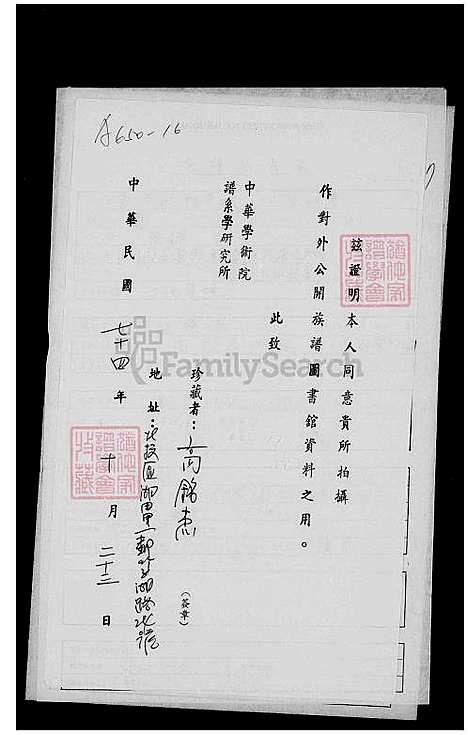 A650-16
茲證明本人同意貴所拍攝
作對外公開族譜圖書館資料之用。
此致
中華學術院
譜系學研究所
珍藏者：高銘杰
(簽章)
地址：北投區湖田里
中華民國七十四年十月二十三日
FamilySearch